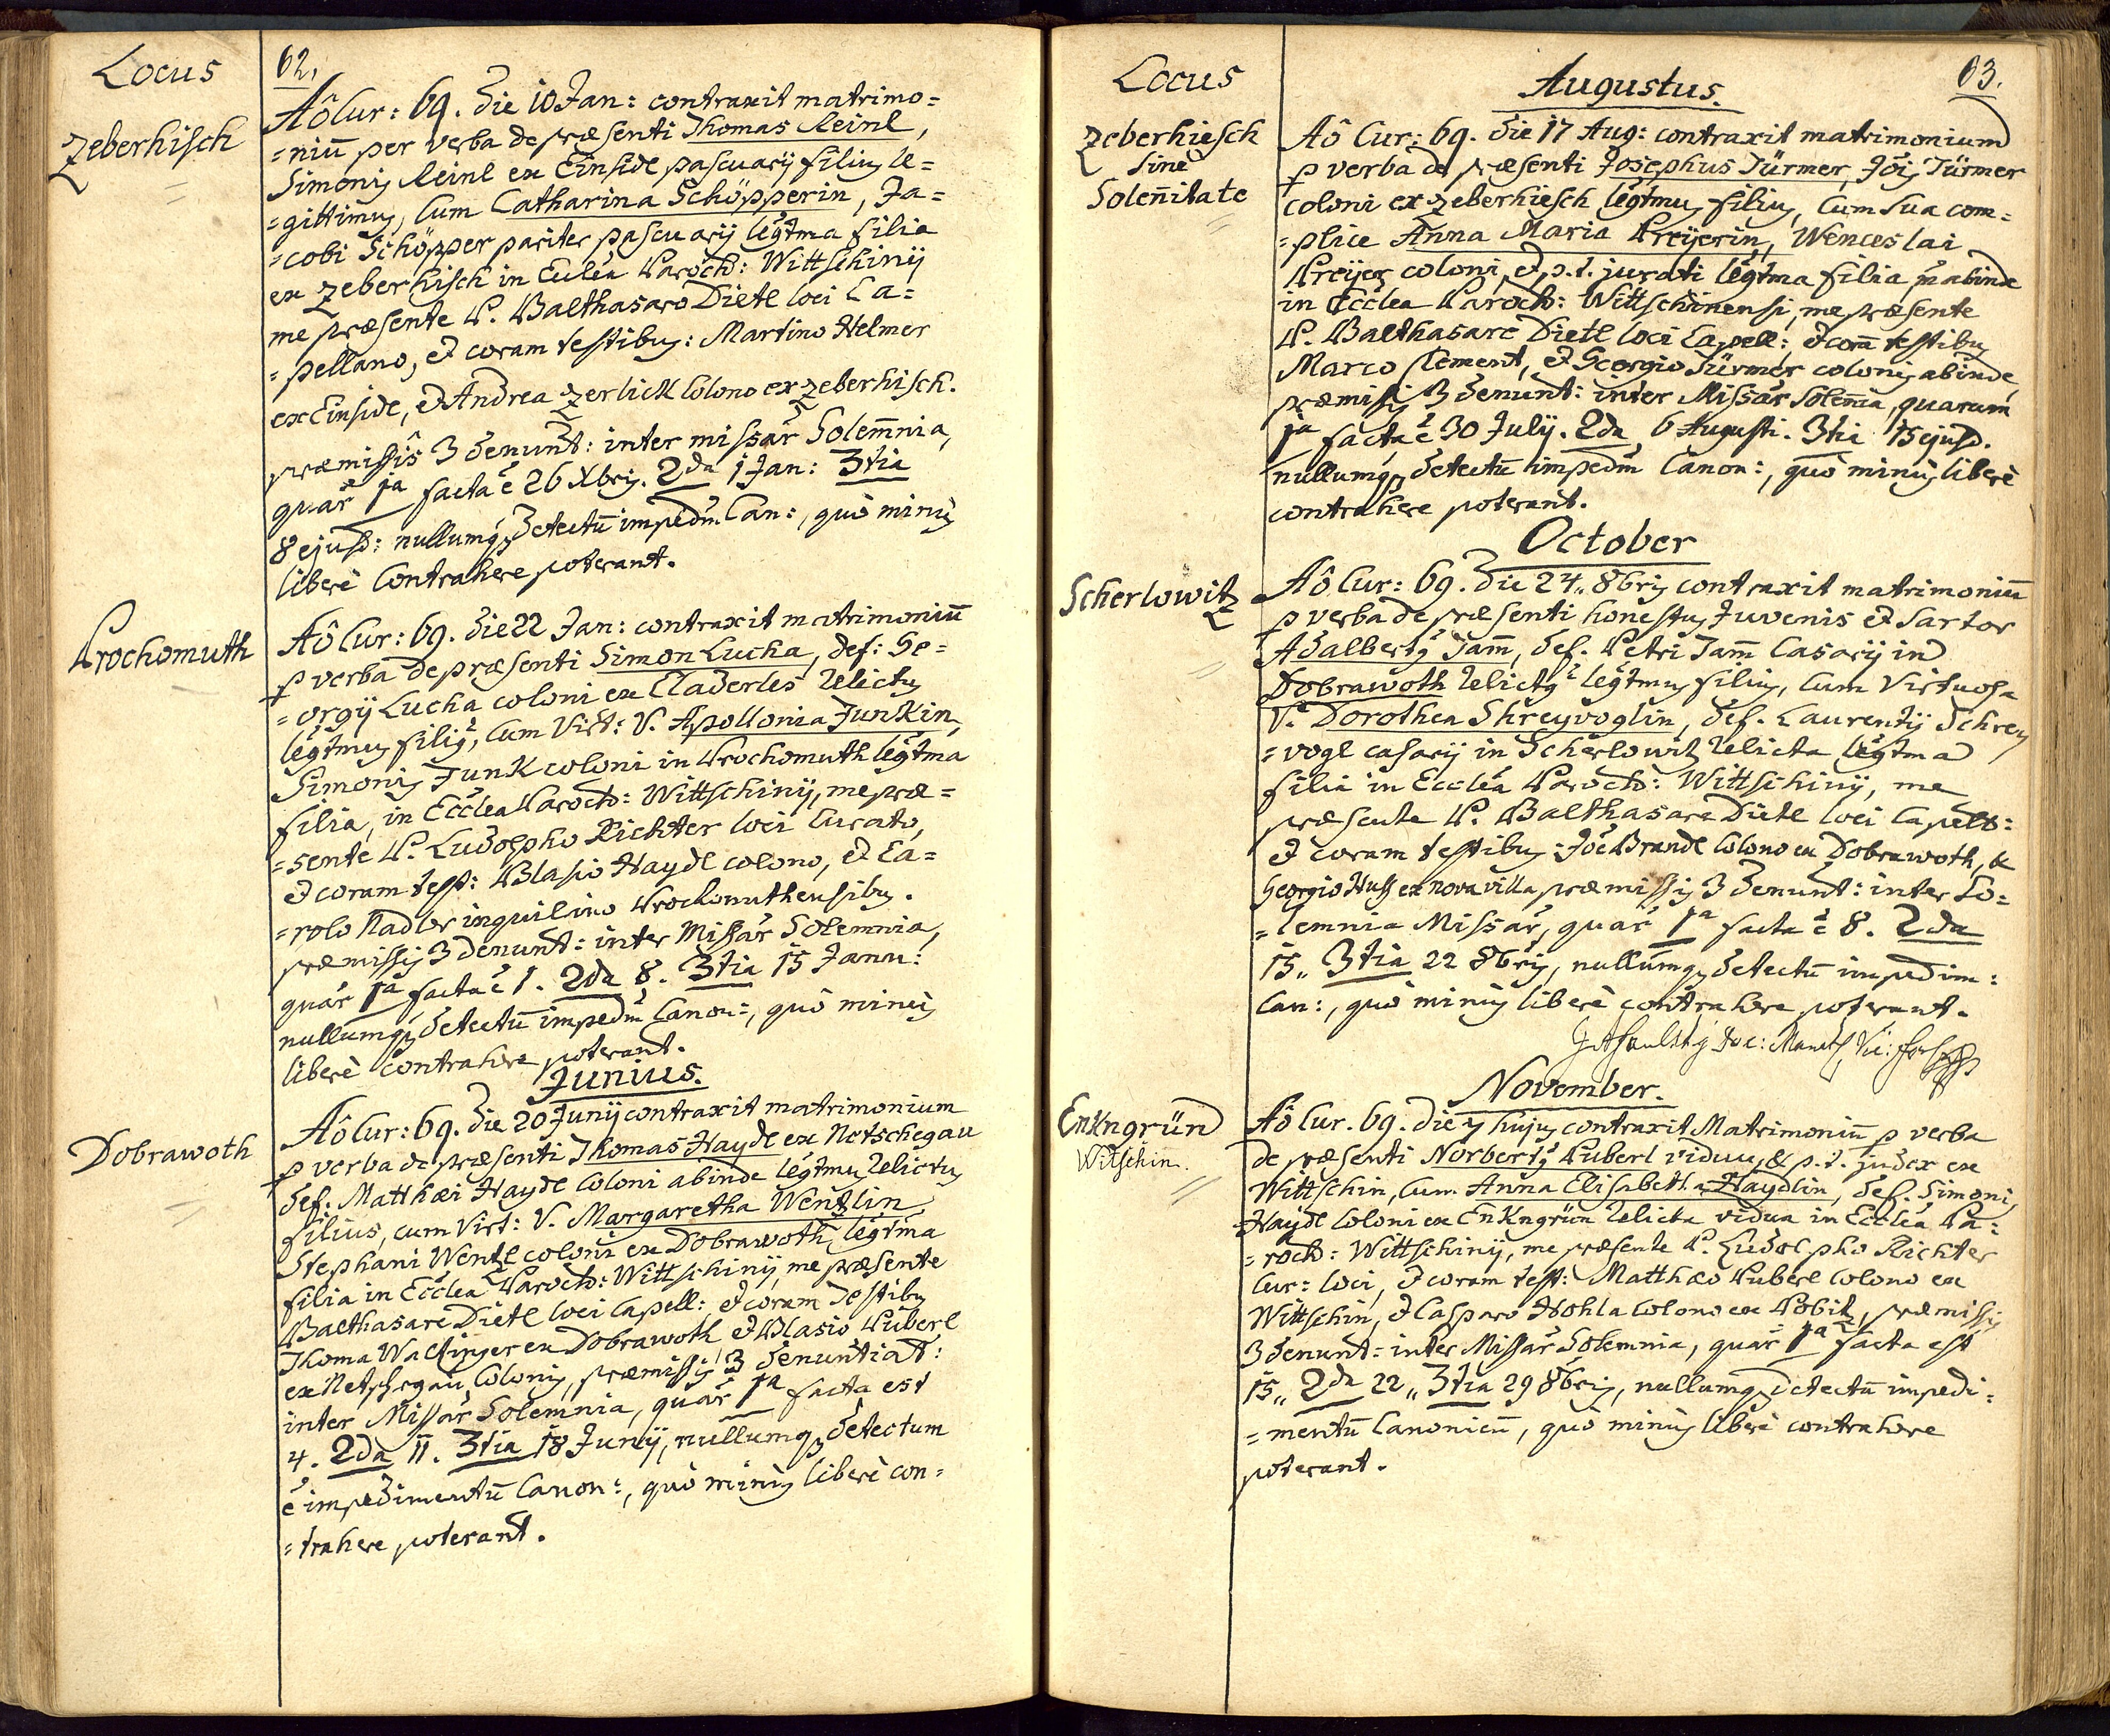 Locus
62.
Zeberhisch
Aô Cur: 69. die 10 Jan: contraxit matrimo=
=niũ per verba de præsenti Thomas Reinl,
Simonis Reinl ex Einside pascuarij filius le=
=gittimus, cum Catharina Schöpperin, Ja=
=cobi Schöpper pariter pascuarij legtma filia
ex Zeberhisch in Ecclea Paroch: Wittschinij
me præsente P. Balthasaro Dietl loci Ca=
=pellano, et coram testibus: Martino Helmer
ex Einside, et Andrea Zerlick Colono ex Zeberhisch.
præmissis 3 denunt: inter missar Solemnia,
quar 1a facta ẽ 26 Xbris. 2da 1 Jan: 3tia
8 ejusd: nullumq detectũ impedm Can:, quò minus
liberè Contrahere poterant.
Prochomuth
Aô Cur: 69. die 22 Jan: contraxit matrimoniũ
p verba de præsenti Simon Lucha, def: Ge=
=orgij Lucha coloni ex Claderles relictus
legtmus filius, cum Virt: V. Apollonia Junkin,
Simonis Junk coloni in Prochomuth legtma
filia, in Ecclea Paroch: Wittschinij, me præ=
=sente P. Ludolpho Richter loci Curato,
et coram test: Blasio Haydl colono, et Ca=
=rolo Nadler inquilino Prochomuthensibus.
præmissis 3 denunt: inter Missar Solemnia,
quar 1a facta ẽ 1. 2da 8. 3tia 15 Janu:
nullumq detectũ impedm Canon:, quò minus
liberè contrahere poterant.
Junius.
Dobrawoth
Aô Cur: 69. die 20 Junij contraxit matrimonium
p verba de præsenti Thomas Haydl ex Netschegau
def. Matthæi Haydl Coloni abinde legtmus relictus
filius, cum Virt: V. Margaretha Wentzlin
Stephani Wentzl coloni ex Dobrawoth legtma
filia in Ecclea Paroch: Wittschinij me præsente
Balthasare Dietl loci Capell: et coram testibus
Thoma Walfinger ex Dobrawoth et Blasio Püberl
ex Netschegau Colonis, præmissis 3 denuntiat:
inter Missar Solemnia, quar 1a facta est
4. 2da 11. 3tia 18 Junij, nullumq detectum
ẽ impedimentũ Canon:, quò minus liberè con=
=trahere poterant.
Locus
63.
Augustus.
Zeberhiesch
Sine
Solenitate
Aô Cur: 69. die 17 Aug: contraxit matrimonium
p verba de præsenti Josephus Türmer, Jõis Türmer
coloni ex Zeberhiesch legtmus filius, cum sua com=
=plice Anna Maria Preijerin, Wenceslai
Preijer coloni, et p.t. jurati legtma filia abinde
in Ecclea Paroch: Wittschinensi, me præsente
P. Balthasare Dietl loci Capell: et corã testibus
Marco Clement, et Georgio Türmer colonis abinde
præmissis 3 denunt: inter Missar Solemnia, quarum
1a facta ẽ 30 Julij. 2da 6 Augusti. 3tia 15 ejusd.
nullumq detectũ impedm Canon:, quò minus liberè
contrahere poterant.
October
Scherlowitz
Aô Cur: 69. die 24.. 8bris contraxit matrimoniũ
p verba de præsenti honestus Juvenis et Sartor
Adalbertus Jam̃, def. Petri Jam̃ Casarij in
Dobrawoth relictus legtmus filius, cum Virtuosa
V. Dorothea Shreyvoglin, def. Laurentij Schrey
=vogl casarij in Scherlowitz relicta legtma
filia in Ecclea Paroch: Wittschinij, me
præsente P. Balthasare Dietl loci Capell:
et coram testibus: Jõe Brandl Colono ex Dobrawoth, &
Georgio Huss ex nova villa præmissis 3 denunt: inter So=
=lemnia Missar, quar 1a facta ẽ 8. 2da
15.. 3tia 22 8bris, nullumq detectũ impedim:
Can:, quò minus liberè contrahere poterant.
November.
Enkngrün
Witschin.
Aô Cur. 69. die 7 hujus contraxit Matrimoniũ p verba
de præsenti Norbertus Puberl viduus, & p.t. judex ex
Wittschin, cum Anna Elisabetha Haydlin, def. Simonis
Haydl Coloni ex Enkngrün relicta vidua in Ecclea Pa=
=roch: Wittschinij, me præsente P. Ludolpho Richter
Cur: loci, et coram test: Matthæo Puberl Colono ex
Wittschin, et Casparo Hohla Colono ex Pobitz, præmissis
3 denunt: inter Missar Solemnia, quar 1a facta est
15.. 2da 22.. 3tia 29 8bris, nullumq detectũ impedi=
=mentũ Canonicũ, quò minus liberè contrahere
poterant.